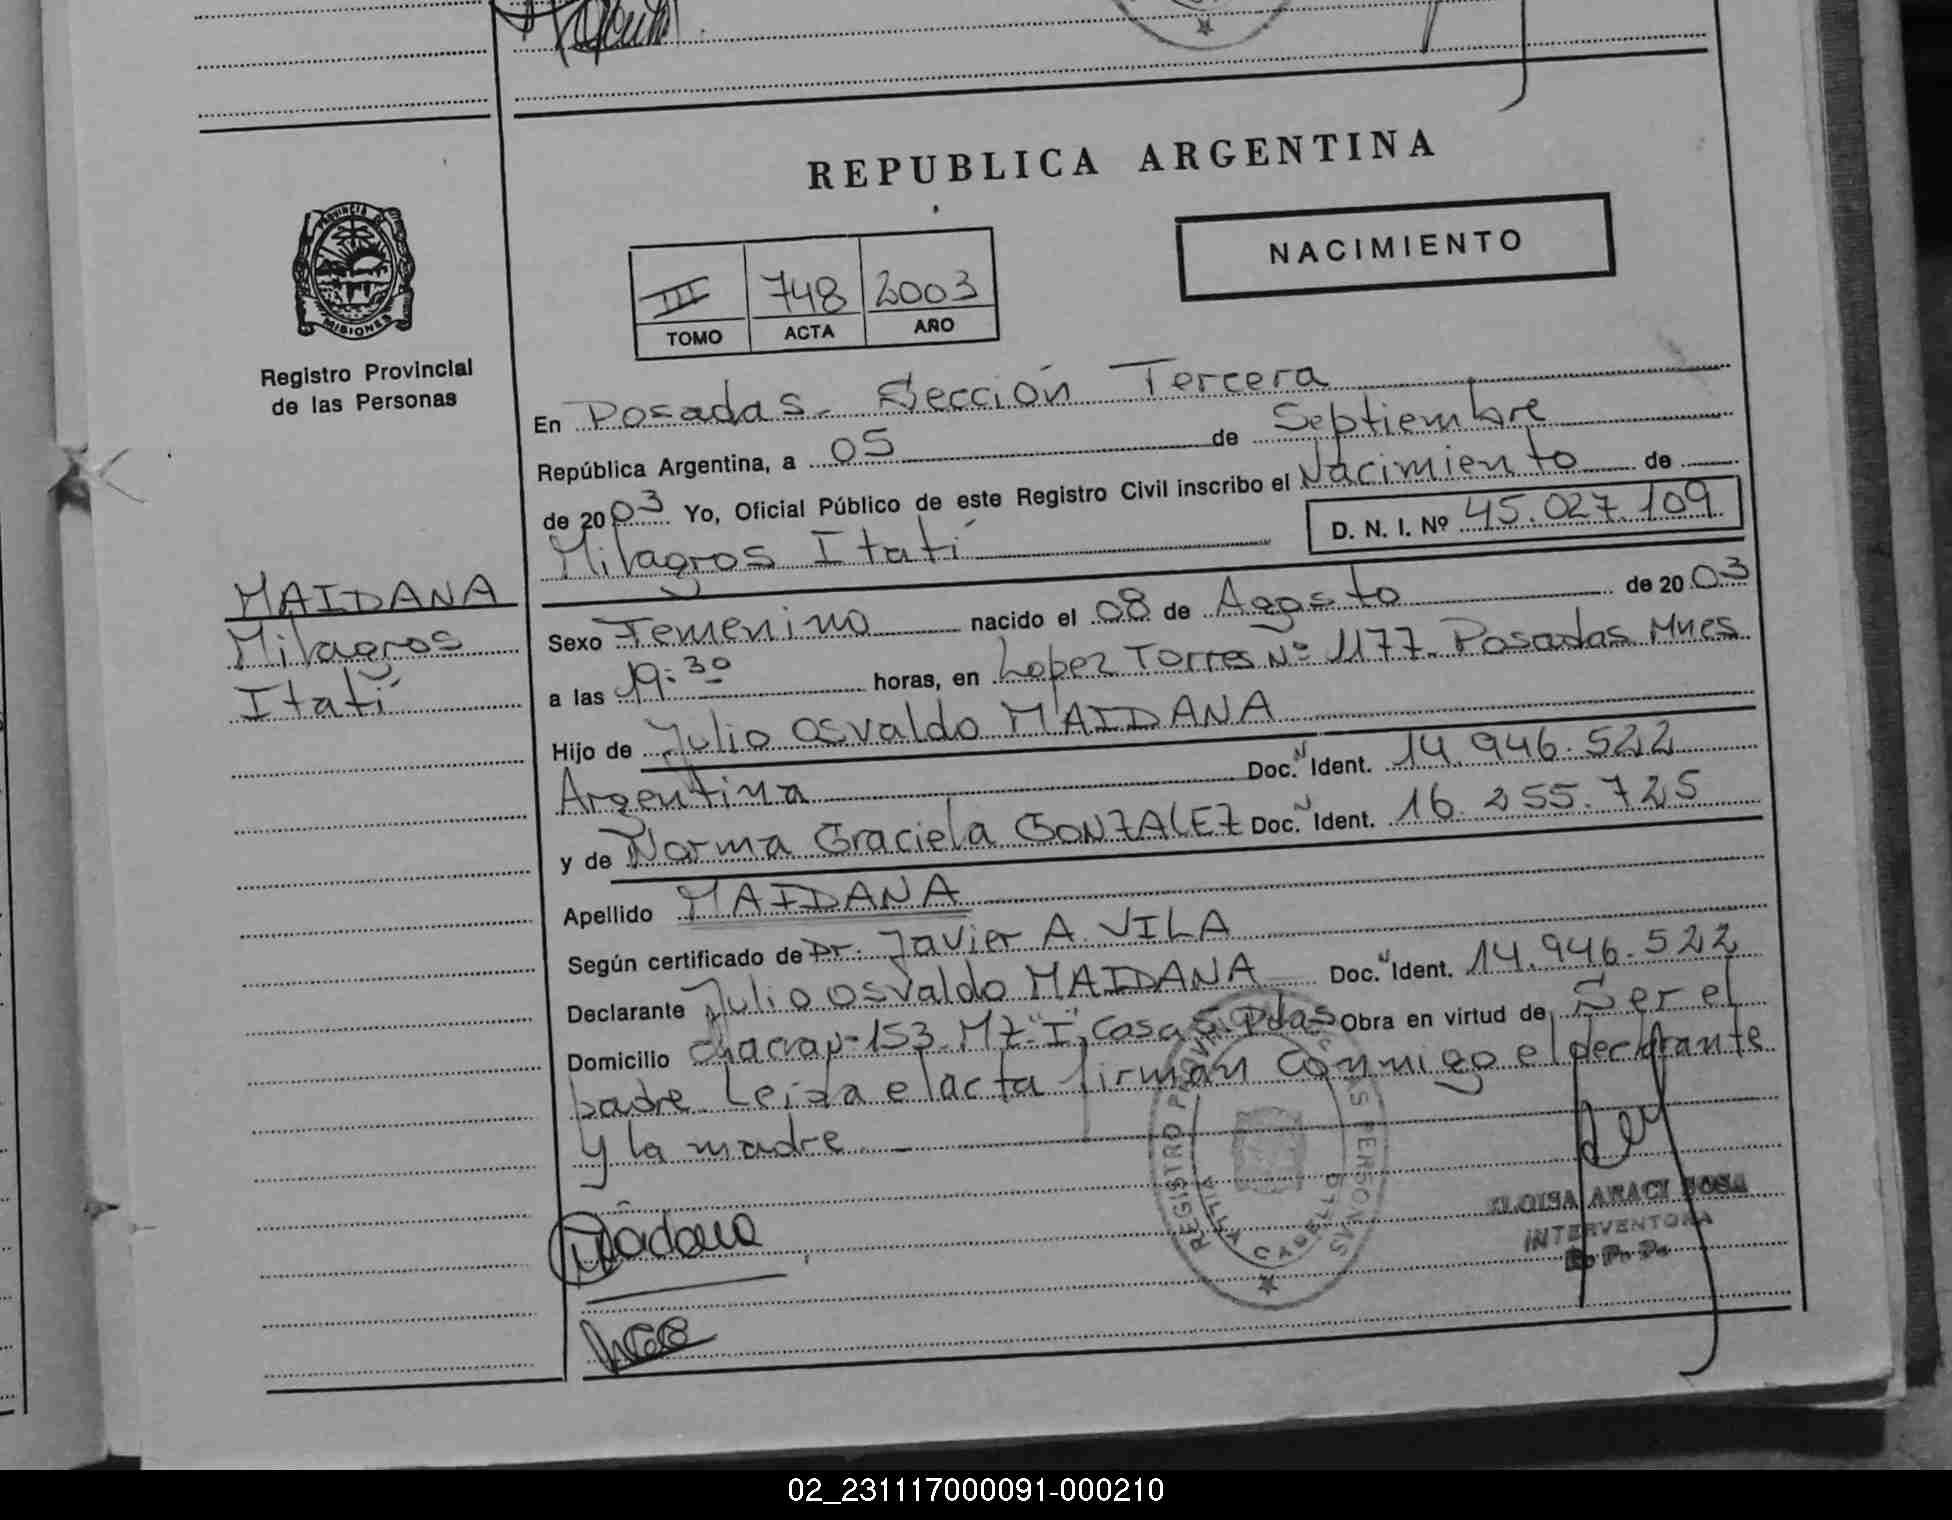 REPUBLICA ARGENTINA
NACIMIENTO
III 748 2003
TOMO ACTA AÑO
PROVINCIA DE
MISIONES
Registro Provincial
de las Personas
MAIDANA
Milagros
Itatí
En Posadas - Sección Tercera
República Argentina, a 05 de Septiembre
de 2003 Yo, Oficial Público de este Registro Civil inscribo el Nacimiento de
Milagros Itatí D. N. I. Nº 45.027.109
Sexo Femenino nacido el 08 de Agosto de 2003
a las 19:30 horas, en Lopez Torres Nº 1177- Posadas Mnes
Hijo de Julio Osvaldo MAIDANA
Argentina Doc. N Ident. 14.946.522
y de Norma Graciela GONZALEZ Doc. N Ident. 16.255.725
Apellido MAIDANA
Según certificado de Dr. Javier A. VILA
Declarante Julio Osvaldo MAIDANA Doc. N Ident. 14.946.522
Domicilio 153. Mz "I", Casa 5. Pdas Obra en virtud de Ser el
padre Leída el acta firman conmigo el declarante
y la madre
REGISTRO PROVINCIAL DE LAS PERSONAS
ELOISA ARACI SOSA
INTERVENTORA
R. P. P.
02_231117000091-000210